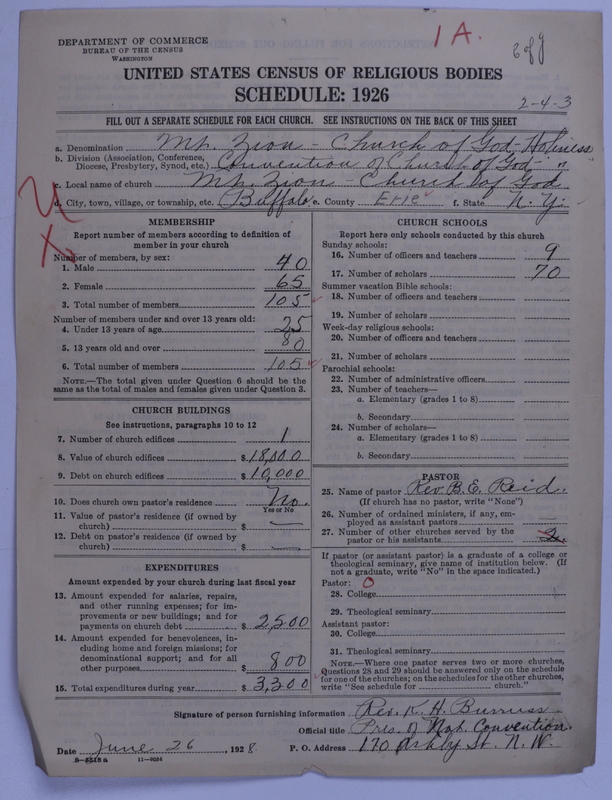 DEPARTMENT OF COMMERCE
BUREAU OF THE CENSUS
WASHINGTON
1A.
2-4-3
UNITED STATES CENSUS OF RELIGIOUS BODIES
SCHEDULE: 1926
FILL OUT A SEPARATE SCHEDULE FOR EACH CHURCH. SEE INSTRUCTIONS ON THE BACK OF THIS SHEET
a. Denomination Mt. Zion - Church of God - Holiness
b. Division (Association, Conference, Diocese, Presbytery, Synod, etc.) Convention of Church of God - "
c. Local name of church Mt. Zion - Church of God
d. City, town, village, or township, etc. Buffalo e. County Erie f. State N. Y.
MEMBERSHIP
Report number of members according to definition of
member in your church
Number of members, by sex:
1. Male 40
2. Female 65
3. Total number of members 105
Number of members under and over 13 years old:
4. Under 13 years of age 25
5. 13 years old and over 80
6. Total number of members 105
NOTE.—The total given under Question 6 should be
same as the total of males and females given under Question 3.
CHURCH BUILDINGS
See instructions, paragraphs 10 to 12
7. Number of church edifices 1
8. Value of church edifices $ 18,000
9. Debt on church edifices $ 10,000
10. Does church own pastor's residence No.
Yes or No
11. Value of pastor's residence (if owned by
church) $ —
12. Debt on pastor's residence (if owned by
church) $ —
EXPENDITURES
Amount expended by your church during last fiscal year
13. Amount expended for salaries, repairs,
and other running expenses; for im-
provements or new buildings; and for
payments on church debt $ 2,500
14. Amount expended for benevolences, in-
cluding home and foreign missions; for
denominational support; and for all
other purposes $ 800
15. Total expenditures during year $ 3,300
CHURCH SCHOOLS
Report here only schools conducted by this church
Sunday schools:
16. Number of officers and teachers 9
17. Number of scholars 70
Summer vacation Bible schools:
18. Number of officers and teachers
19. Number of scholars
Week-day religious schools:
20. Number of officers and teachers
21. Number of scholars
Parochial schools:
22. Number of administrative officers
23. Number of teachers—
a. Elementary (grades 1 to 8)
b. Secondary
24. Number of scholars—
a. Elementary (grades 1 to 8)
b. Secondary
PASTOR
25. Name of pastor Rev. B. E. Reid.
(If church has no pastor, write "None")
26. Number of ordained ministers, if any, em-
ployed as assistant pastors
27. Number of other churches served by the
pastor or his assistants 2.
If pastor (or assistant pastor) is a graduate of a college or
theological seminary, give name of institution below. (If
not a graduate, write "No" in the space indicated.)
Pastor: 0
28. College
29. Theological seminary
Assistant pastor:
30. College
31. Theological seminary
NOTE.—Where one pastor serves two or more churches,
Questions 28 and 29 should be answered only on the schedule
for one of the churches; on the schedules for the other churches,
write "See schedule for church."
Signature of person furnishing information Rev. K. H. Burruss
Official title Pres. of Nat. Convention.
Date June 26, 1928. P. O. Address 170 Ashby St. N. W.
8-5518 a 11-9034